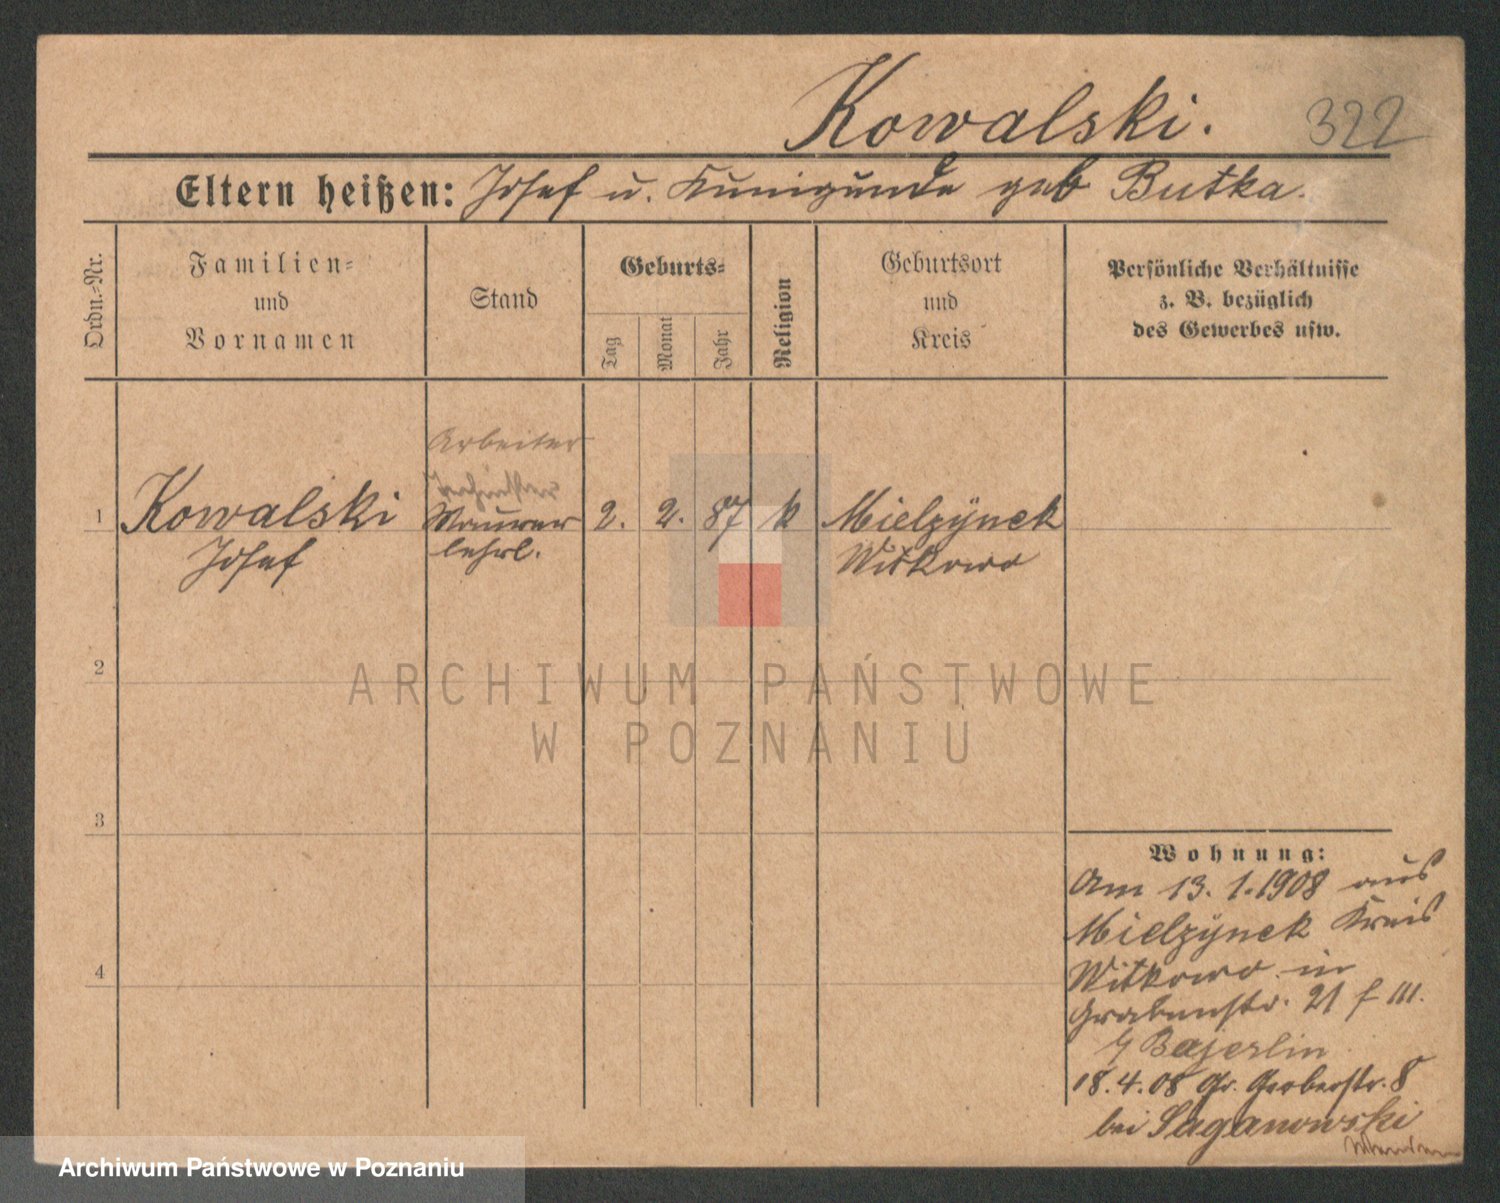 Kowalski. 322
Eltern heißen: Josef u. Kunigunde geb Butka.
Ordn.-Nr.
Familien-
und
Vornamen
Stand
Geburts-
Tag
Monat
Jahr
Religion
Geburtsort
und
Kreis
Persönliche Verhältnisse
z. B. bezüglich
des Gewerbes usw.
Arbeiter
1 Kowalski Maurer 2. 2. 87 k Mielzÿnek
Josef lehrl. Witkowo
2
ARCHIWUM PAŃSTWOWE
W POZNANIU
3
Wohnung:
Am 13.1.1908 aus
Mielzÿnek Kreis
4
Witkowo in
Grabenstr. 21 f III.
Bajerlin
18.4.08 Gr. Gerberstr. 8
bei Saganowski
Archiwum Państwowe w Poznaniu